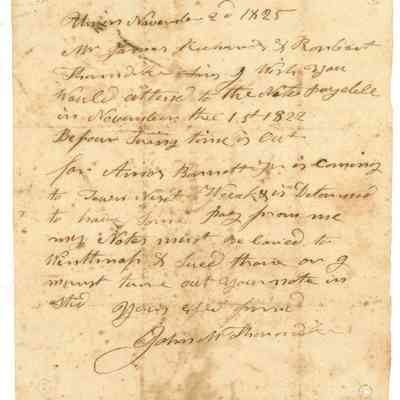 Union November 2d 1825
Mr James Richards & Robbert
Thorndike Sirs I Wish you
Would attend to the Notes payable
in November the 1st 1822
Befour Suing time is Out
for Amos Barrett Jr is coming
to Town Next Week & is Determined
to have Some pay from me
my Notes must be Caried to
Winthrop & Sued thare or I
must turn out your note in
sted Your frind
John W Thorndike